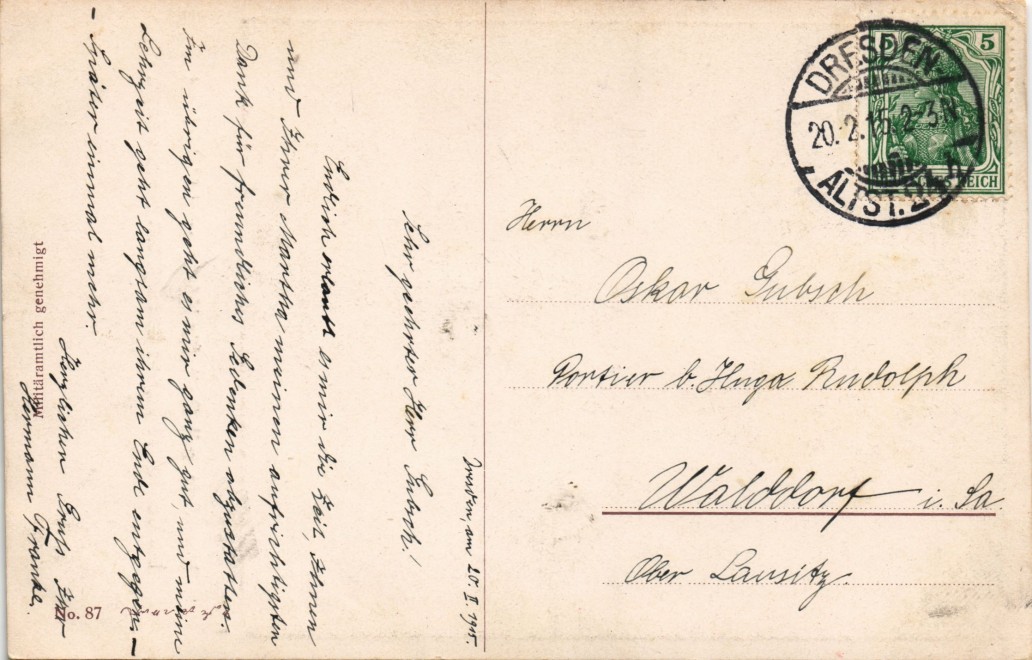 Dresden, am 20. II. 1915.
Sehr geehrter Herr Gubsch!
Endlich erlaubt es mir die Zeit, Ihnen
und Ihrer Martha meinen aufrichtigsten
Dank für freundliches Gedenken abzustatten.
Im übrigen geht es mir ganz gut, und meine
Lehrzeit geht langsam ihrem Ende entgegen. –
– Später einmal mehr.
Herzlichen Gruß Ihr
Hermann Franke.
Militäramtlich genehmigt
No. 87
5 5
REICH
DRESDEN
20. 2. 15. 2-3N
ALTST. 24
Herrn
Oskar Gubsch
Portier b. Hugo Rudolph
Walddorf i. Sa.
Ober Lausitz